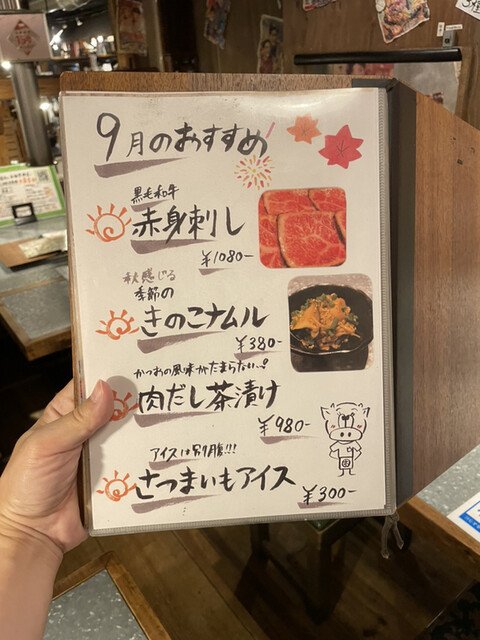 9月のおすすめ!
黒毛和牛
赤身刺し
¥1080-
秋感じる
季節の
きのこナムル
¥380-
かつおの風味がたまらない..!
肉だし茶漬け
¥980-
アイスは別腹!!!
さつまいもアイス
¥300-